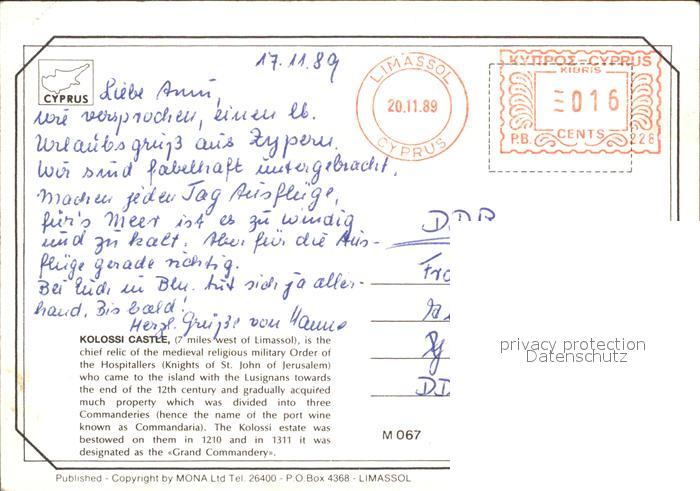 17.11.89
CYPRUS
Liebe Anni,
wie versprochen, einen lb.
Urlaubsgruß aus Zypern.
Wir sind fabelhaft untergebracht,
machen jeden Tag Ausflüge,
für's Meer ist es zu windig
und zu kalt. Aber für die Aus-
flüge gerade richtig.
Bei Euch in Bln. tut sich ja aller-
hand. Bis bald!
Herzl. Grüße von Hanne
KOLOSSI CASTLE, (7 miles west of Limassol), is the
chief relic of the medieval religious military Order of
the Hospitallers (Knights of St. John of Jerusalem)
who came to the island with the Lusignans towards
the end of the 12th century and gradually acquired
much property which was divided into three
Commanderies (hence the name of the port wine
known as Commandaria). The Kolossi estate was
bestowed on them in 1210 and in 1311 it was
designated as the «Grand Commandery».
Published - Copyright by MONA Ltd Tel. 26400 - P.O.Box 4368 - LIMASSOL
LIMASSOL
20.11.89
CYPRUS
ΚΥΠΡΟΣ-CYPRUS
KIBRIS
016
CENTS
P.B. 228
DDR
Fr
DD
M 067
privacy protection
Datenschutz